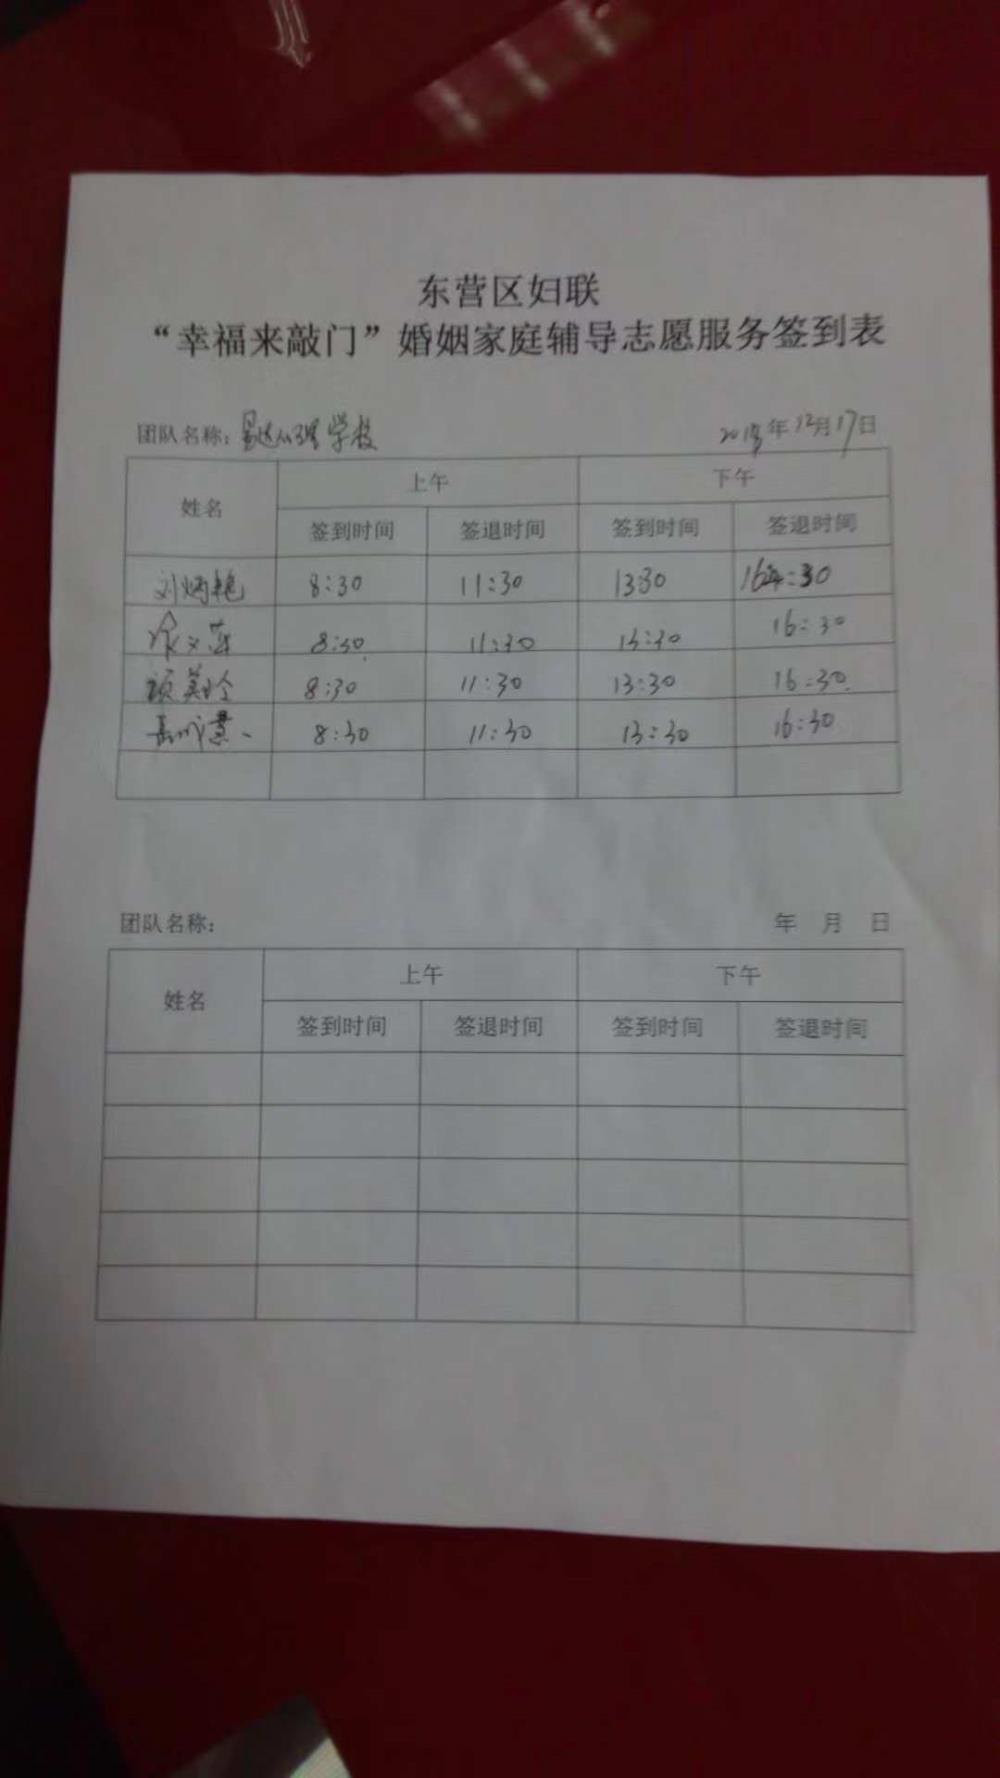 东营区妇联
“幸福来敲门”婚姻家庭辅导志愿服务签到表
团队名称：易达心理学校 年12月17日
姓名 上午 下午
签到时间 签退时间 签到时间 签退时间
刘炳艳 8:30 11:30 13:30 16:30
徐文萍 8:30 11:30 13:30 16:30
顾美玲 8:30 11:30 13:30 16:30
8:30 11:30 13:30 16:30
团队名称： 年 月 日
姓名 上午 下午
签到时间 签退时间 签到时间 签退时间